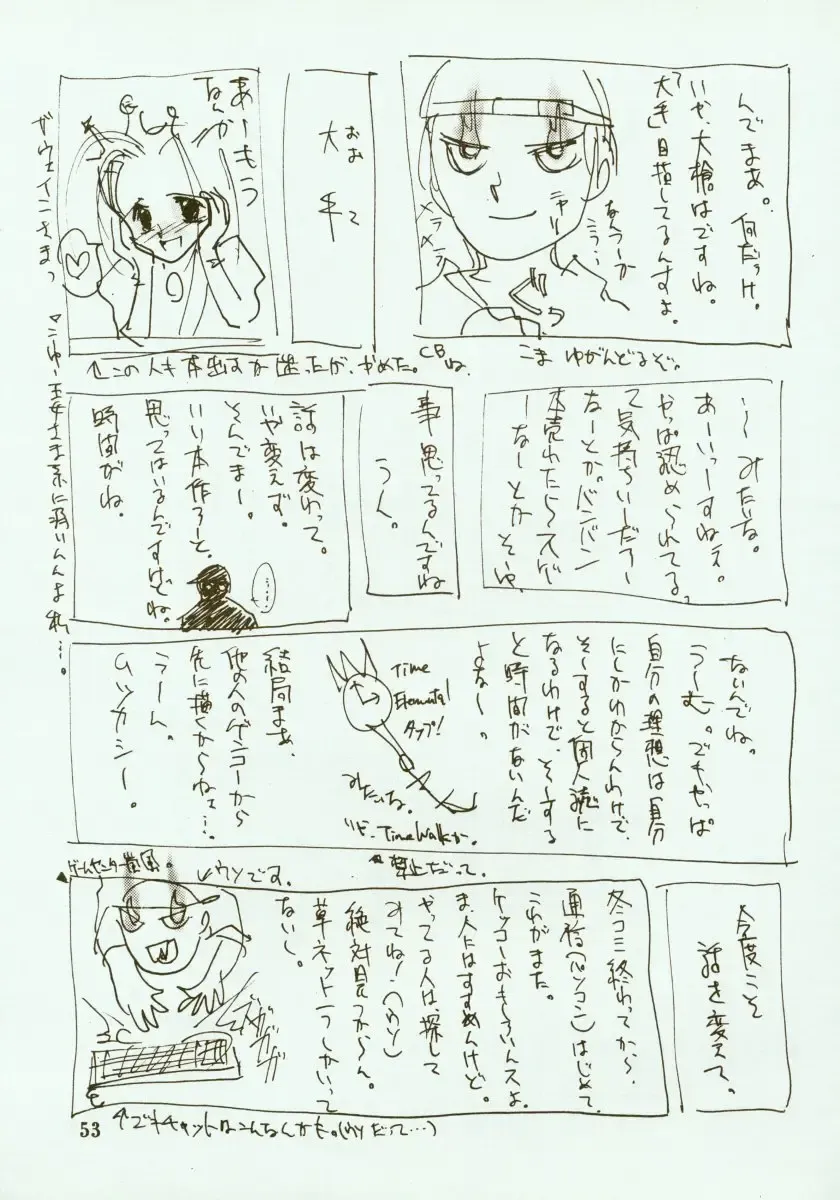 んでまあ。何だっけ。
いや、大槍はですね。
「大手」目指してるんすよ。
なんつーか
こう…
ニヤリ
メラメラ
こま ゆがんどるぞ。
CBね
おお て
大手
あーもう
なんかー
ガウェインさまっ
↑この人も本出すか迷ったが、やめた。
いーみたいな。
あーいっすねえ。
やっぱ認められてる
て気持ちいーだろー
なーとか。バンバン
本売れたらスゲ
ーなーとかそいゆ
事思ってるんですね
うん。
話は変わって。
いや変えず。
そんでまー。
いい本作ろーと、
思ってはいるんですけどね。
時間がね。
ないんでね。
うーむ。でもやっぱ
自分の理想は自分
にしかわからんわけで、
そーすると個人誌に
なるわけで、そーする
と時間がないんだ
よなー。
Time
Elemental
タップ!
みたいな。
Time Walkか。
禁止だって。
結局まあ、
他の人のゲンコーから
先に描くからねェ…。
うーん。
ムツカシー。
今度こそ
話を変えて。
冬コミ終わってから、
通信(パソコン)はじめて、
これがまた。
ケッコーおもしろいんスよ。
ま、人にはすすめんけど。
やってる人は探して
みてね!(ウソ)
絶対見つからん。
草ネット一つしかいって
ないし。
ゲームセンター嵐風。
ウソです。
ガガガガガ
↑でもチャットはこんなんかも。(ウソだって…)
53